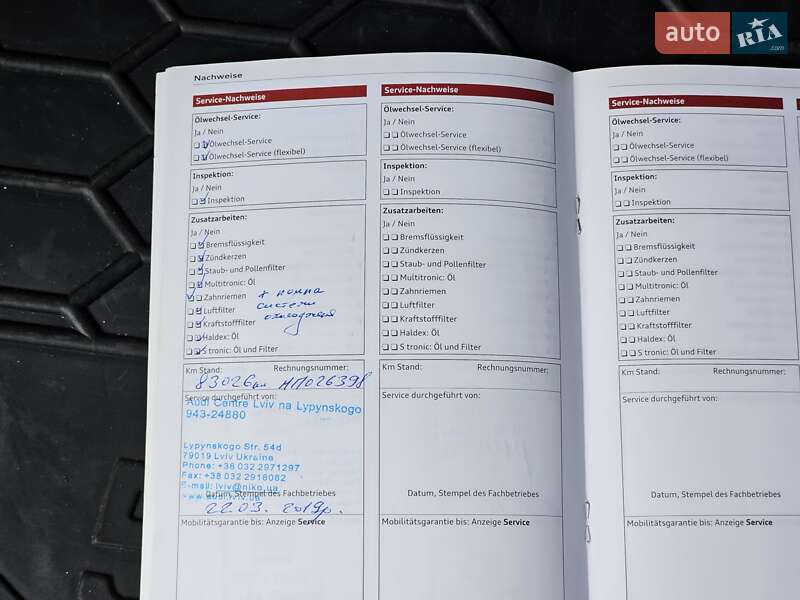 auto RIA .com
Nachweise
Service-Nachweise
Ölwechsel-Service:
Ja / Nein
Ölwechsel-Service
Ölwechsel-Service (flexibel)
Inspektion:
Ja / Nein
Inspektion
Zusatzarbeiten:
Ja / Nein
Bremsflüssigkeit
Zündkerzen
Staub- und Pollenfilter
Multitronic: Öl
Zahnriemen
+ помпа
системи
охолодження
Luftfilter
Kraftstofffilter
Haldex: Öl
S tronic: Öl und Filter
Km Stand: Rechnungsnummer:
83026км НП026398
Service durchgeführt von:
Audi Centre Lviv na Lypynskogo
943-24880
Lypynskogo Str. 54d
79019 Lviv Ukraine
Phone: +38 032 2971297
Fax: +38 032 2918082
E-mail: lviv@niko.ua
www.audi.lviv.ua
Datum, Stempel des Fachbetriebes
22.03. 2019р.
Mobilitätsgarantie bis: Anzeige Service
Service-Nachweise
Ölwechsel-Service:
Ja / Nein
Ölwechsel-Service
Ölwechsel-Service (flexibel)
Inspektion:
Ja / Nein
Inspektion
Zusatzarbeiten:
Ja / Nein
Bremsflüssigkeit
Zündkerzen
Staub- und Pollenfilter
Multitronic: Öl
Zahnriemen
Luftfilter
Kraftstofffilter
Haldex: Öl
S tronic: Öl und Filter
Km Stand: Rechnungsnummer:
Service durchgeführt von:
Datum, Stempel des Fachbetriebes
Mobilitätsgarantie bis: Anzeige Service
Service-Nachweise
Ölwechsel-Service:
Ja / Nein
Ölwechsel-Service
Ölwechsel-Service (flexibel)
Inspektion:
Ja / Nein
Inspektion
Zusatzarbeiten:
Ja / Nein
Bremsflüssigkeit
Zündkerzen
Staub- und Pollenfilter
Multitronic: Öl
Zahnriemen
Luftfilter
Kraftstofffilter
Haldex: Öl
S tronic: Öl und Filter
Km Stand: Rechnungsnummer:
Service durchgeführt von:
Datum, Stempel des Fachbetriebes
Mobilitätsgarantie bis: Anzeige Service